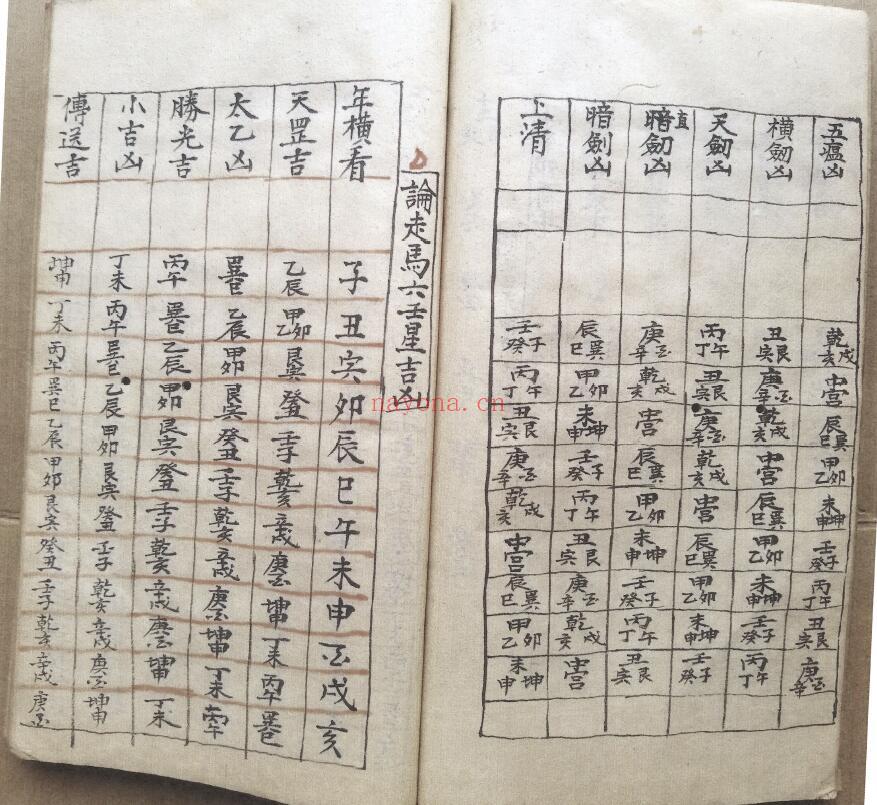 五瘟凶 乾戌亥 中宫 辰巽巳 甲卯乙 未坤申 壬子癸 丙午丁 丑艮寅 庚酉辛
横劒凶 丑艮寅 庚酉辛 乾戌亥 中宫 辰巽巳 甲卯乙 未坤申 壬子癸 丙午丁
天劒凶 丙午丁 丑艮寅 庚酉辛 乾戌亥 中宫 辰巽巳 甲卯乙 未坤申 壬子癸
直暗劒凶 庚酉辛 乾戌亥 中宫 辰巽巳 甲卯乙 未坤申 壬子癸 丙午丁 丑艮寅
暗劍凶 辰巽巳 甲卯乙 未坤申 壬子癸 丙午丁 丑艮寅 庚酉辛 乾戌亥 中宫
上清 壬子癸 丙午丁 丑艮寅 庚酉辛 乾戌亥 中宫 辰巽巳 甲卯乙 未坤申
論走馬六壬星吉凶
年橫看 子 丑 寅 卯 辰 巳 午 未 申 酉 戌 亥
天罡吉 乙辰 甲卯乙 艮寅 癸丑 壬子 乾亥 辛戌 庚酉 坤申 丁未 丙午 巽巳
太乙凶 巽巳 乙辰 甲卯 艮寅 癸丑 壬子 乾亥 辛戌 庚酉 坤申 丁未 丙午
勝光吉 丙午 巽巳 乙辰 甲卯 艮寅 癸丑 壬子 乾亥 辛戌 庚酉 坤申 丁未
小吉凶 丁未 丙午 巽巳 乙辰 甲卯 艮寅 癸丑 壬子 乾亥 辛戌 庚酉 坤申
傳送吉 坤申 丁未 丙午 巽巳 乙辰 甲卯 艮寅 癸丑 壬子 乾亥 辛戌 庚酉
nayona.cn